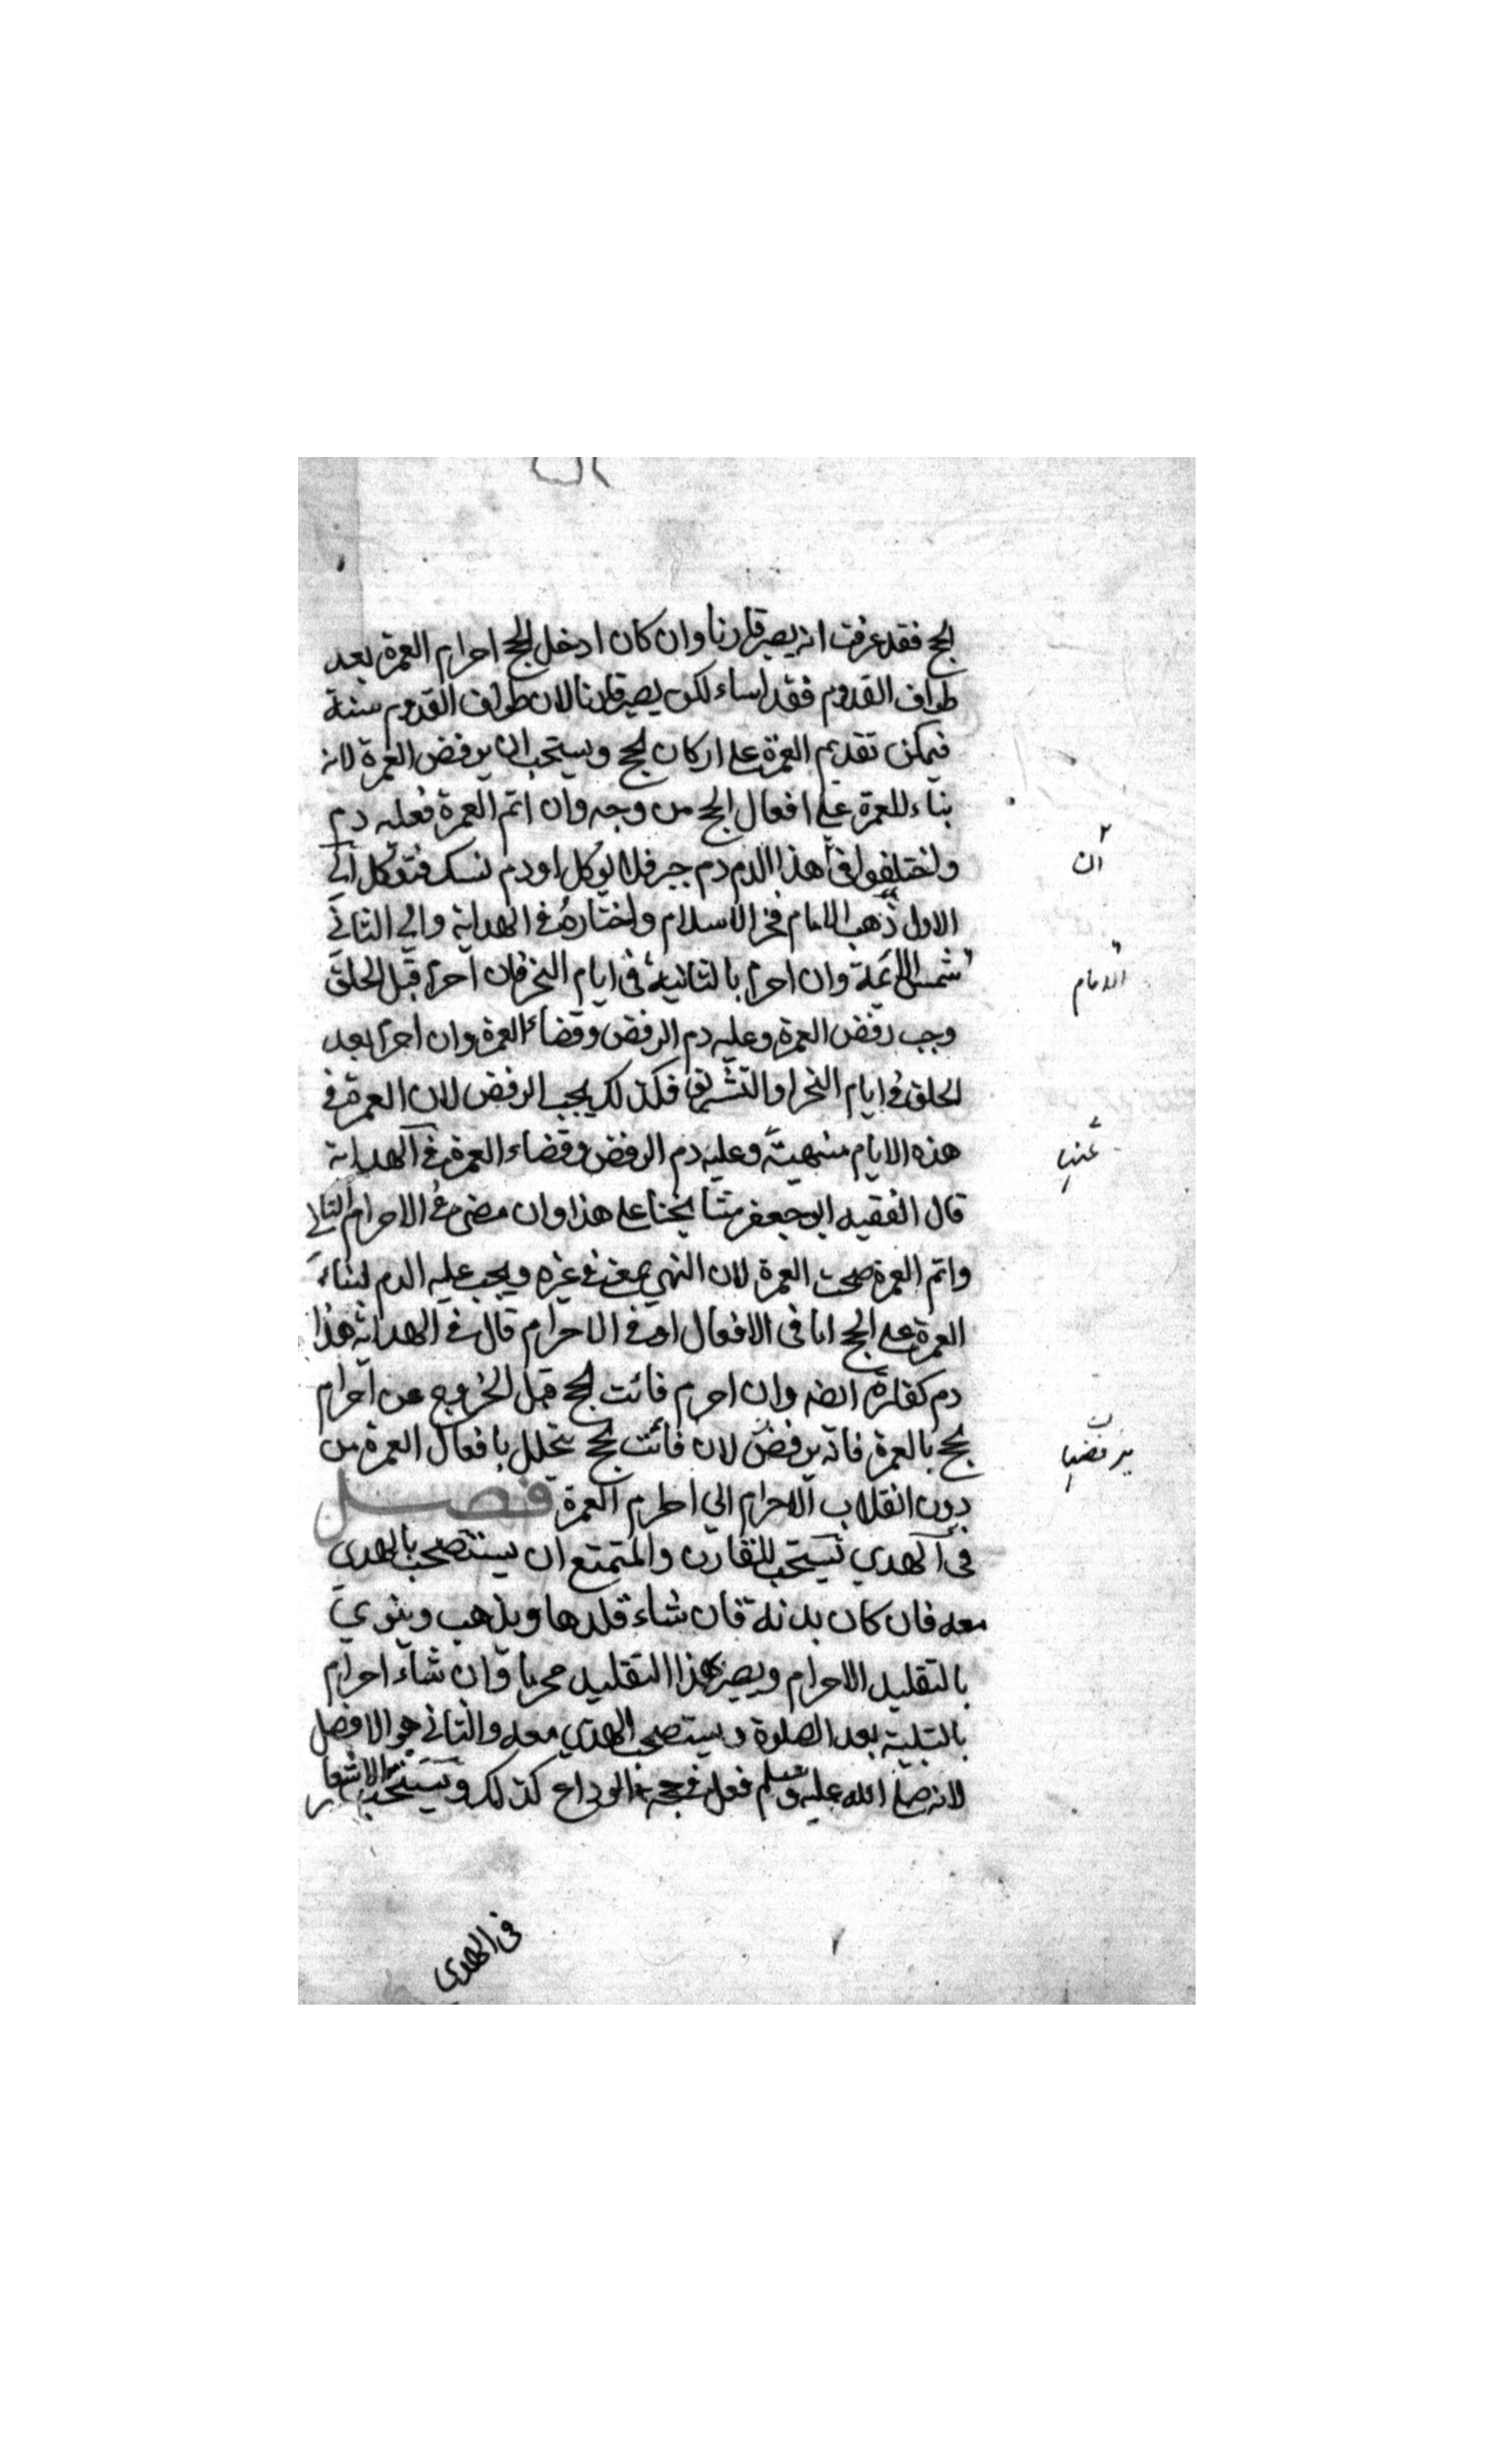 الحج فقد عرفت انه يصير قارنا وان كان ادخل الحج احرام العمرة بعد
طواف القدوم فقد اساء لكن يصير قارنا لان طواف القدوم سنة
فيمكن تقديم العمرة على اركان الحج ويستحب ان يرفض العمرة لانه
بناء للعمرة على افعال الحج من وجه وان اتم العمرة فعليه دم
واختلفوا في هذا الدم دم جبر فلا يوكل او دم نسك فتوكل الي
ان
الاول ذهب الامام فخر الاسلام واختاره في الهداية والي الثاني
شمس الائمة وان احرم بالثانية في ايام النحر فان احرم قبل الحلق
الامام
وجب رفض العمرة وعليه دم الرفض وقضاء العمرة وان احرم بعد
الحلق في ايام النحر او التشريق فكذلك يجب الرفض لان العمرة في
هذه الايام منهية وعليه دم الرفض وقضاء العمرة في الهداية
عنها
قال الفقيه ابو جعفر مشايخنا على هذا وان مضى في الاحرام الثاني
واتم العمرة صحت العمرة لان النهي لمعنى في غيره ويجب عليه الدم لبناء
العمرة على الحج اما في الافعال او في الاحرام قال في الهداية هذا
دم كفارة ايضا وان احرم فائت الحج قبل الخروج عن احرام
الحج بالعمرة فانه يرفض لان فائت الحج يتحلل بافعال العمرة من
يرفضها
دون انقلاب الاحرام الي احرام العمرة فصل
في الهدي يستحب للقارن والمتمتع ان يستصحب بالهدي
معه فان كان بدنة فان شاء قلدها ويذهب وينوي
بالتقليد الاحرام ويصير بهذا التقليد محرما وان شاء احرام
بالتلبية بعد الصلوة ويستصحب الهدي معه والثاني هو الافضل
لانه صلى الله عليه وسلم فعل في حجة الوداع كذلك ويستحب الاشعار
في الهدي